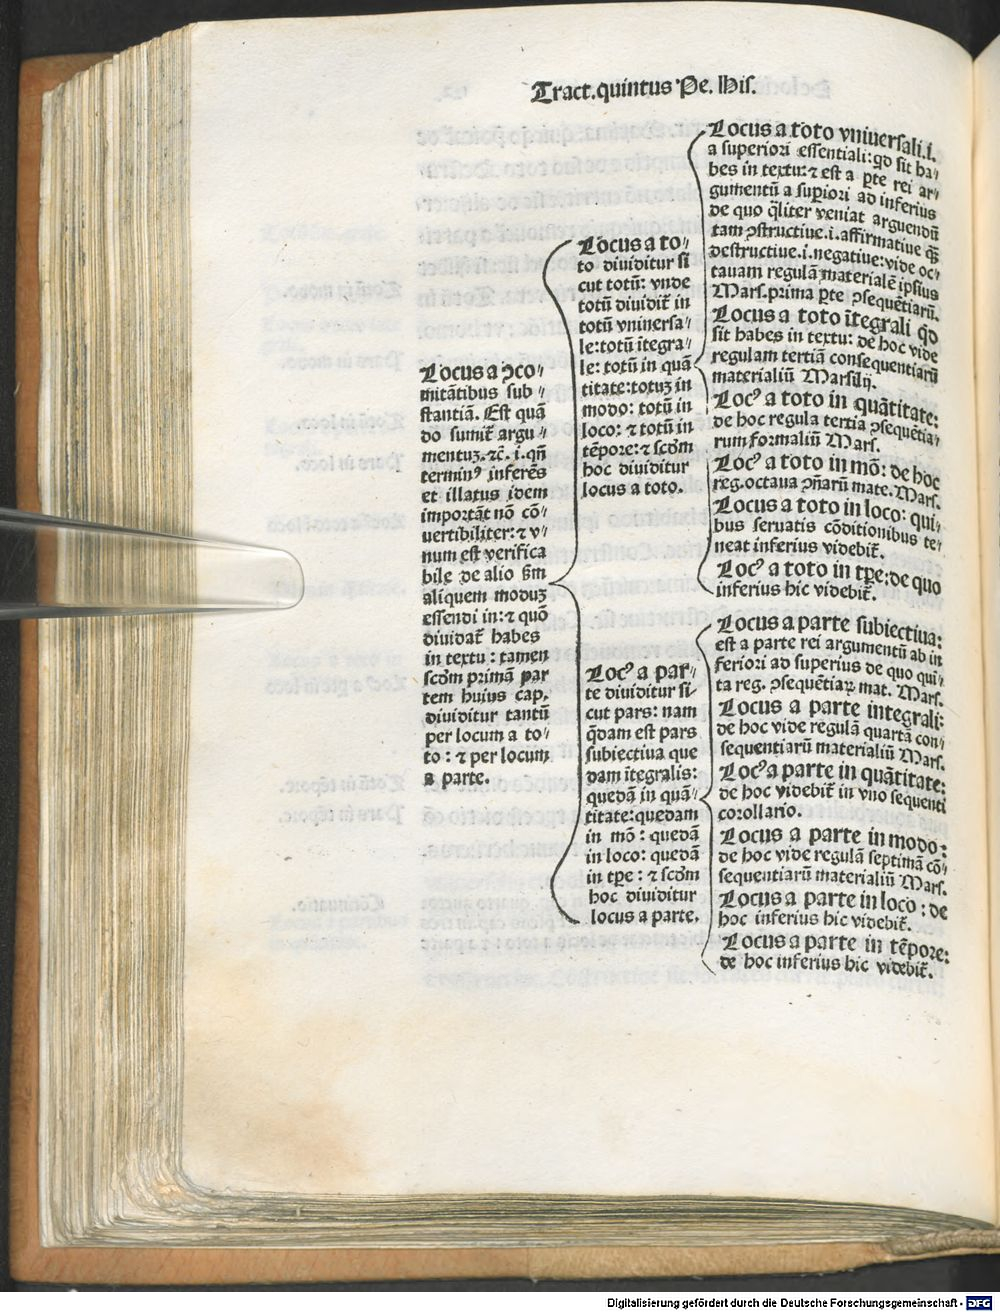 Tract. quintus Pe. His.
Locus a ↄco⸗
mitātibus sub⸗
stantiā. Est quā
do sumit̄ argu⸗
mentuꝫ. ⁊c̄. i. qn̄
terminꝰ inferēs
et illatus idem
importāt nō cō⸗
uertibiliter: ⁊ v⸗
num est verifica
bile de alio ẜm
aliquem moduꝫ
essendi in: ⁊ quō
diuidat̄ habes
in textu: tamen
scd̄m primā par
tem huius cap.
diuiditur tantū
per locum a to⸗
to: ⁊ per locum
a parte.
Locus a to⸗
to diuiditur si
cut totū: vnde
totū diuidit̄ in
totū vniuersa⸗
le: totū ītegra⸗
le: totū in quā
titate: totuꝫ in
modo: totū in
loco: ⁊ totū in
tēpore: ⁊ scd̄m
hoc diuiditur
locus a toto.
Locꝰ a par⸗
te diuiditur si⸗
cut pars: nam
q̄dam est pars
subiectiua que
dam ītegralis:
quedā in quā⸗
titate: quedam
in mō: quedā
in loco: quedā
in tp̄e: ⁊ scd̄m
hoc diuiditur
locus a parte.
Locus a toto vniuersali. i.
a superiori essentiali: qd̓ sit ha⸗
bes in textu: ⁊ est a ꝑte rei ar⸗
gumentū a suꝑiori ad inferius
de quo q̄liter veniat arguendū
tam ↄstructiue. i. affirmatiue q̄ꝫ
destructiue. i. negatiue: vide oc⸗
tauam regulā materialē ipsius
Mars. prima ꝑte ↄsequētiarū.
Locus a toto ītegrali qd̓
sit habes in textu: de hoc vide
regulam tertiā consequentiarū
materialiū Marsilij.
Locꝰ a toto in quātitate:
de hoc regula tertia ↄsequētia⸗
rum formaliū Mars.
Locꝰ a toto in mō: de hoc
reg. octaua ↄn̄arū mate. Mars.
Locus a toto in loco: qui⸗
bus seruatis cōditionibus te⸗
neat inferius videbit̄.
Locꝰ a toto in tp̄e: de quo
inferius hic videbit̄.
Locus a parte subiectiua:
est a parte rei argumentū ab in
feriori ad superius de quo qui⸗
ta reg. ↄsequētiaꝝ mat. Mars.
Locus a parte integrali:
de hoc vide regulā quartā con⸗
sequentiarū materialiū Mars.
Locꝰ a parte in quātitate:
de hoc videbit̄ in vno sequenti
corollario.
Locus a parte in modo:
de hoc vide regulā septimā cō⸗
sequentiarū materialiū Mars.
Locus a parte in loco: de
hoc inferius hic videbit̄.
Locus a parte in tēpore:
de hoc inferius hic videbit̄.
Digitalisierung gefördert durch die Deutsche Forschungsgemeinschaft - DFG